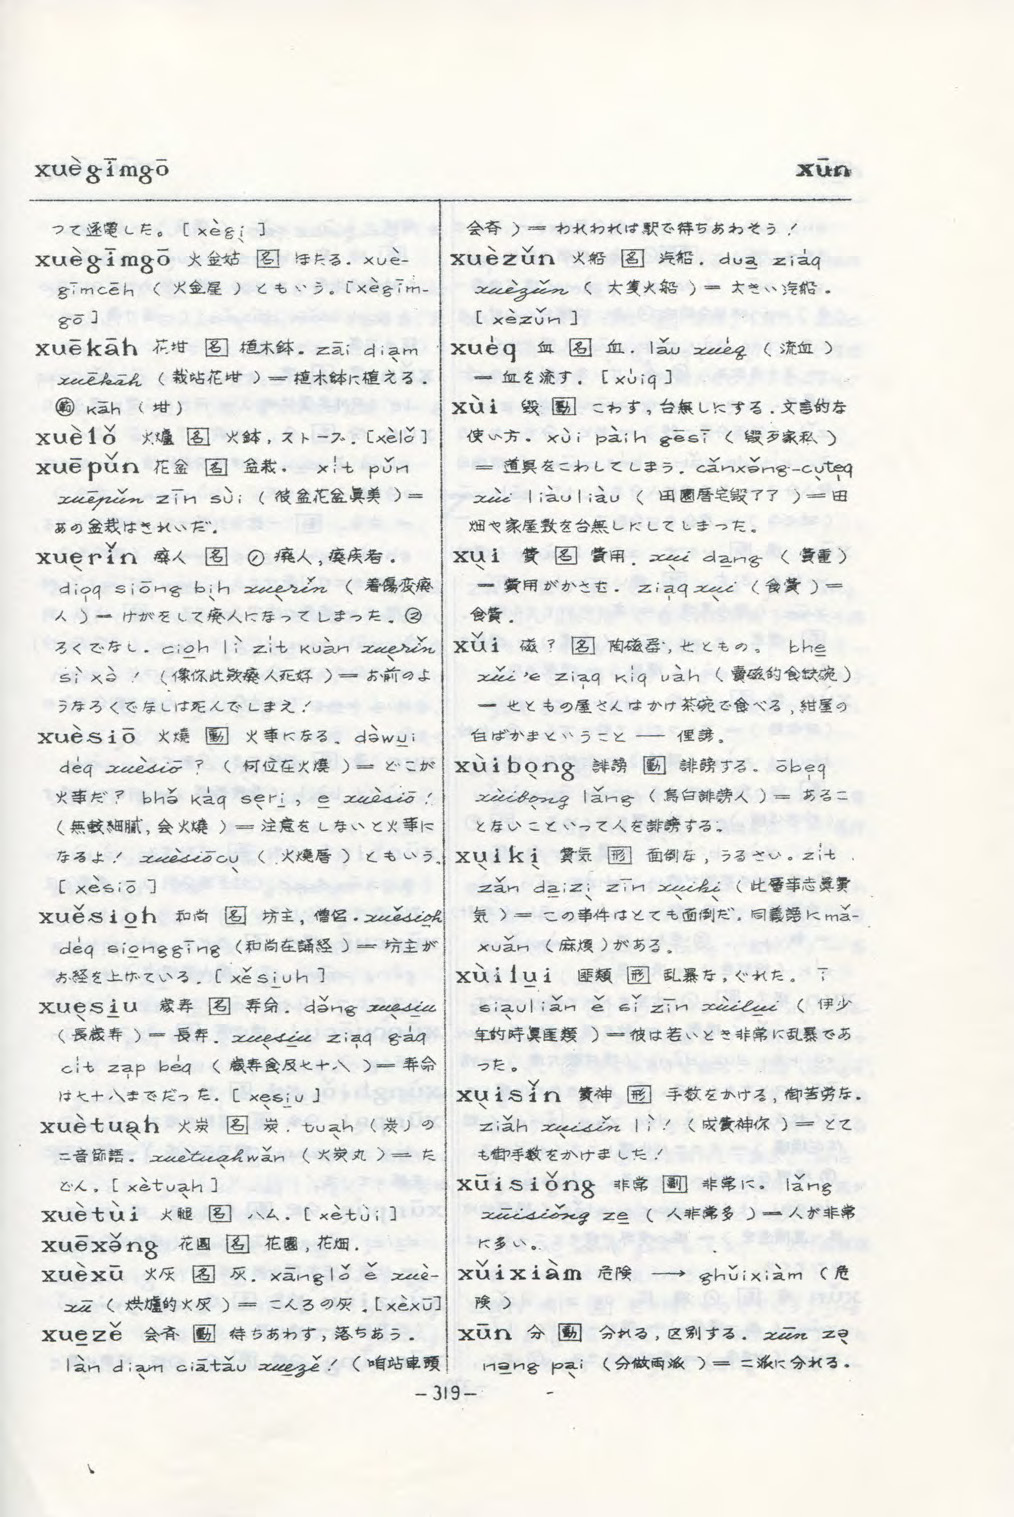 xuègīmgō
xūn
つて逐電した。[ xègi ]
xuègīmgō 火金姑 名 ほたる. xuè-
gīmcēh ( 火金星 ) ともいう。[xègīm-
gō]
xuēkāh 花坩 名 植木鉢. zāi diam
xuēkāh ( 栽站花坩 ) = 植木鉢に植える.
kāh ( 坩 )
xuèlǒ 火爐 名 火鉢, ストーブ. [xèlǒ]
xuēpǔn 花盆 名 盆栽. xit pǔn
xuēpǔn zīn sùi ( 彼盆花盆眞美 ) =
あの盆栽はきれいだ.
xuerǐn 癈人 名 ① 癈人, 癈疾者.
dioq siōng bih xuerǐn ( 着傷変癈
人 ) = けがをして癈人になってしまった. ②
ろくでなし. cioh lì zit kuàn xuerǐn
sì xò ! ( 像你此款癈人死好 ) = お前のよ
うなろくでなしは死んでしまえ!
xuèsiō 火燒 動 火事になる. dǒwui
dėq xuèsiō ? ( 何位在火燒 ) = どこが
火事だ? bhǒ kàq seri, e xuèsiō !
( 無較細膩, 会火燒 ) = 注意をしないと火事に
なるよ! xuèsiōcu ( 火燒厝 ) ともいう.
[ xèsiō ]
xuěsioh 和尚 名 坊主, 僧侶. xuěsioh
dėq siongging (和尚在誦経 ) = 坊主が
お経を上げている. [ xěsiuh ]
xuesiu 歳寿 名 寿命. dǒng xuesiu
(長歳寿 ) = 長寿. xuesiu ziaq gàq
cit zap bėq ( 歳寿食及七十八 ) = 寿命
は七十八までだった. [ xesiu ]
xuètuah 火炭 名 炭. tuah ( 炭 ) の
二音節語. xuètuahwǎn ( 火炭丸 ) = た
どん. [ xètuah ]
xuètùi 火腿 名 ハム. [ xètùi ]
xuēxǒng 花園 名 花園, 花畑.
xuèxū 火灰 名 灰. xānglǒ ě xuè-
xū ( 烘爐的火灰 ) = こんろの灰. [xèxū]
xuezě 会斉 動 待ちあわす, 落ちあう.
làn diam ciātǎu xuezě! ( 咱站車頭
会斉 ) = われわれは駅で待ちあわそう!
xuèzǔn 火船 名 汽船. dua ziáq
xuèzǔn ( 大隻火船 ) = 大きい汽船.
[ xèzǔn ]
xuėq 血 名 血. lǎu xuėq ( 流血 )
= 血を流す. [ xuiq ]
xùi 毀 動 こわす, 台無しにする. 文言的な
使い方. xùi pàih gēsī ( 毀歹家私 )
= 道具をこわしてしまう. cǎnxǒng-cuteq
xùi liàuliàu ( 田園厝宅毀了了 ) = 田
畑や家屋敷を台無しにしてしまった.
xui 費 名 費用. xui dang ( 費重 )
= 費用がかさむ. ziaq xui ( 食費 ) =
食費.
xǔi 磁? 名 陶磁器, せともの. bhe
xǔi 'e ziaq kiq uàh ( 賣磁的食缺碗 )
= せともの屋さんはかけ茶碗で食べる, 紺屋の
白ばかまということ — 俚諺.
xùibong 誹謗 動 誹謗する. ōbeq
xùibong lǎng ( 烏白誹謗人 ) = あるこ
とないこといって人を誹謗する.
xuiki 費気 形 面倒な, うるさい. zit
zǎn daizi zīn xuiki ( 此層事志眞費
気 ) = この事件はとても面倒だ. 同義語にmǎ-
xuǎn ( 麻煩 ) がある.
xùilui 匪類 形 乱暴な, ぐれた.
siauliǎn ě sǐ zīn xùilui ( 伊少
年的時眞匪類 ) = 彼は若いとき非常に乱暴であ
った.
xuisǐn 費神 形 手数をかける, 御苦労な.
ziǎh xuisǐn lì ! ( 成費神你 ) = とて
も御手数をかけました!
xūisiǒng 非常 副 非常に. lǎng
xūisiǒng ze ( 人非常多 ) = 人が非常
に多い.
xǔixiàm 危険 → ghǔixiàm ( 危
険 )
xūn 分 動 分れる, 区別する. xūn zo
nang pai ( 分做両派 ) = 二派に分れる.
-319-